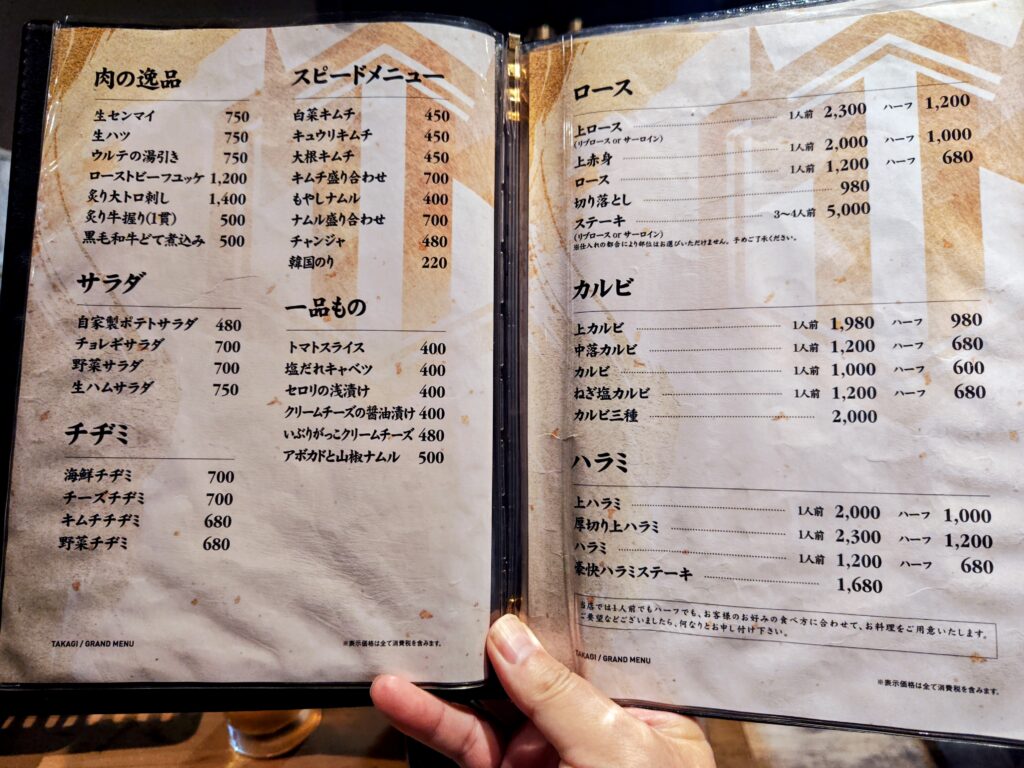 肉の逸品
生センマイ 750
生ハツ 750
ウルテの湯引き 750
ローストビーフユッケ 1,200
炙り大トロ刺し 1,400
炙り牛握り(1貫) 500
黒毛和牛どて煮込み 500
サラダ
自家製ポテトサラダ 480
チョレギサラダ 700
野菜サラダ 700
生ハムサラダ 750
チヂミ
海鮮チヂミ 700
チーズチヂミ 700
キムチチヂミ 680
野菜チヂミ 680
スピードメニュー
白菜キムチ 450
キュウリキムチ 450
大根キムチ 450
キムチ盛り合わせ 700
もやしナムル 400
ナムル盛り合わせ 700
チャンジャ 480
韓国のり 220
一品もの
トマトスライス 400
塩だれキャベツ 400
セロリの浅漬け 400
クリームチーズの醤油漬け 400
いぶりがっこクリームチーズ 480
アボカドと山椒ナムル 500
TAKAGI / GRAND MENU
※表示価格は全て消費税を含みます。
ロース
上ロース 1人前 2,300 ハーフ 1,200
(リブロース or サーロイン)
上赤身 1人前 2,000 ハーフ 1,000
ロース 1人前 1,200 ハーフ 680
切り落とし 980
ステーキ 3〜4人前 5,000
(リブロース or サーロイン)
※仕入れの都合により部位はお選びいただけません。予めご了承ください。
カルビ
上カルビ 1人前 1,980 ハーフ 980
中落カルビ 1人前 1,200 ハーフ 680
カルビ 1人前 1,000 ハーフ 600
ねぎ塩カルビ 1人前 1,200 ハーフ 680
カルビ三種 2,000
ハラミ
上ハラミ 1人前 2,000 ハーフ 1,000
厚切り上ハラミ 1人前 2,300 ハーフ 1,200
ハラミ 1人前 1,200 ハーフ 680
豪快ハラミステーキ 1,680
当店では1人前でもハーフでも、お客様のお好みの食べ方に合わせて、お料理をご用意いたします。
ご要望などございましたら、何なりとお申し付け下さい。
TAKAGI / GRAND MENU
※表示価格は全て消費税を含みます。